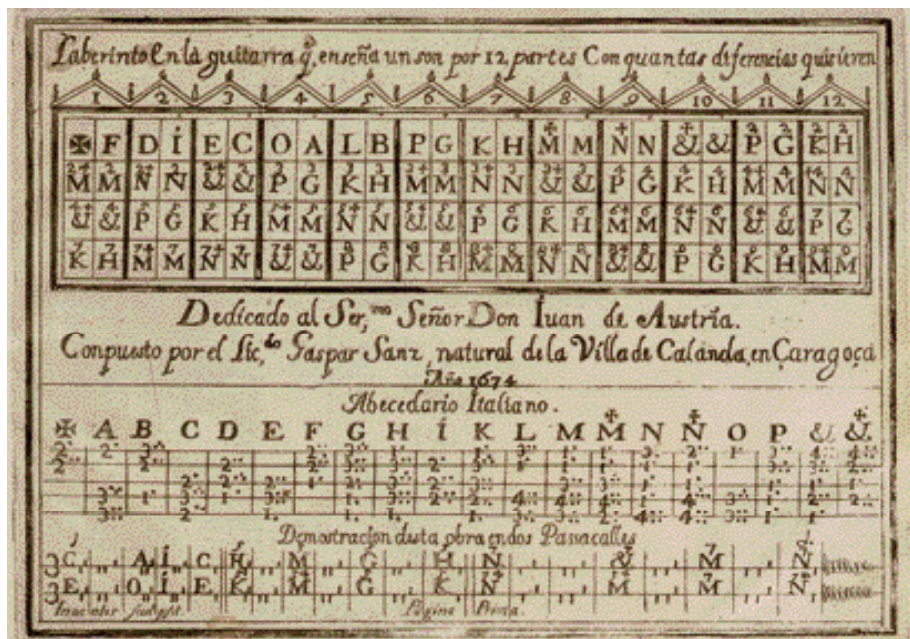 Laberinto En la guitarra q̃, enseña un son por 12 partes Con quantas diferencias quisieren
1 2 3 4 5 6 7 8 9 10 11 12
✠ F D Í E C O A L B P G K H M M N N & & P G K H
M M N N & & P G K H M M N N & & P G K H M M N N
& & P G K H M M N N & & P G K H M M N N & & P G
K H M M N N & & P G K H M M N N & & P G K H M M
Dedicado al Ser,mo Señor Don Iuan de Austria.
Conpuesto por el Lic,do Gaspar Sanz, natural de la Villa de Calanda, en Çaragoça
Año 1674
Abecedario Italiano.
✠ A B C D E F G H Í K L M M N N O P & &
Demostracion desta obra en dos Passacalles
C A Í C H M G H N & M N
E O Í E K M G K N M M N
Inventor sculpsit. Página Prima.